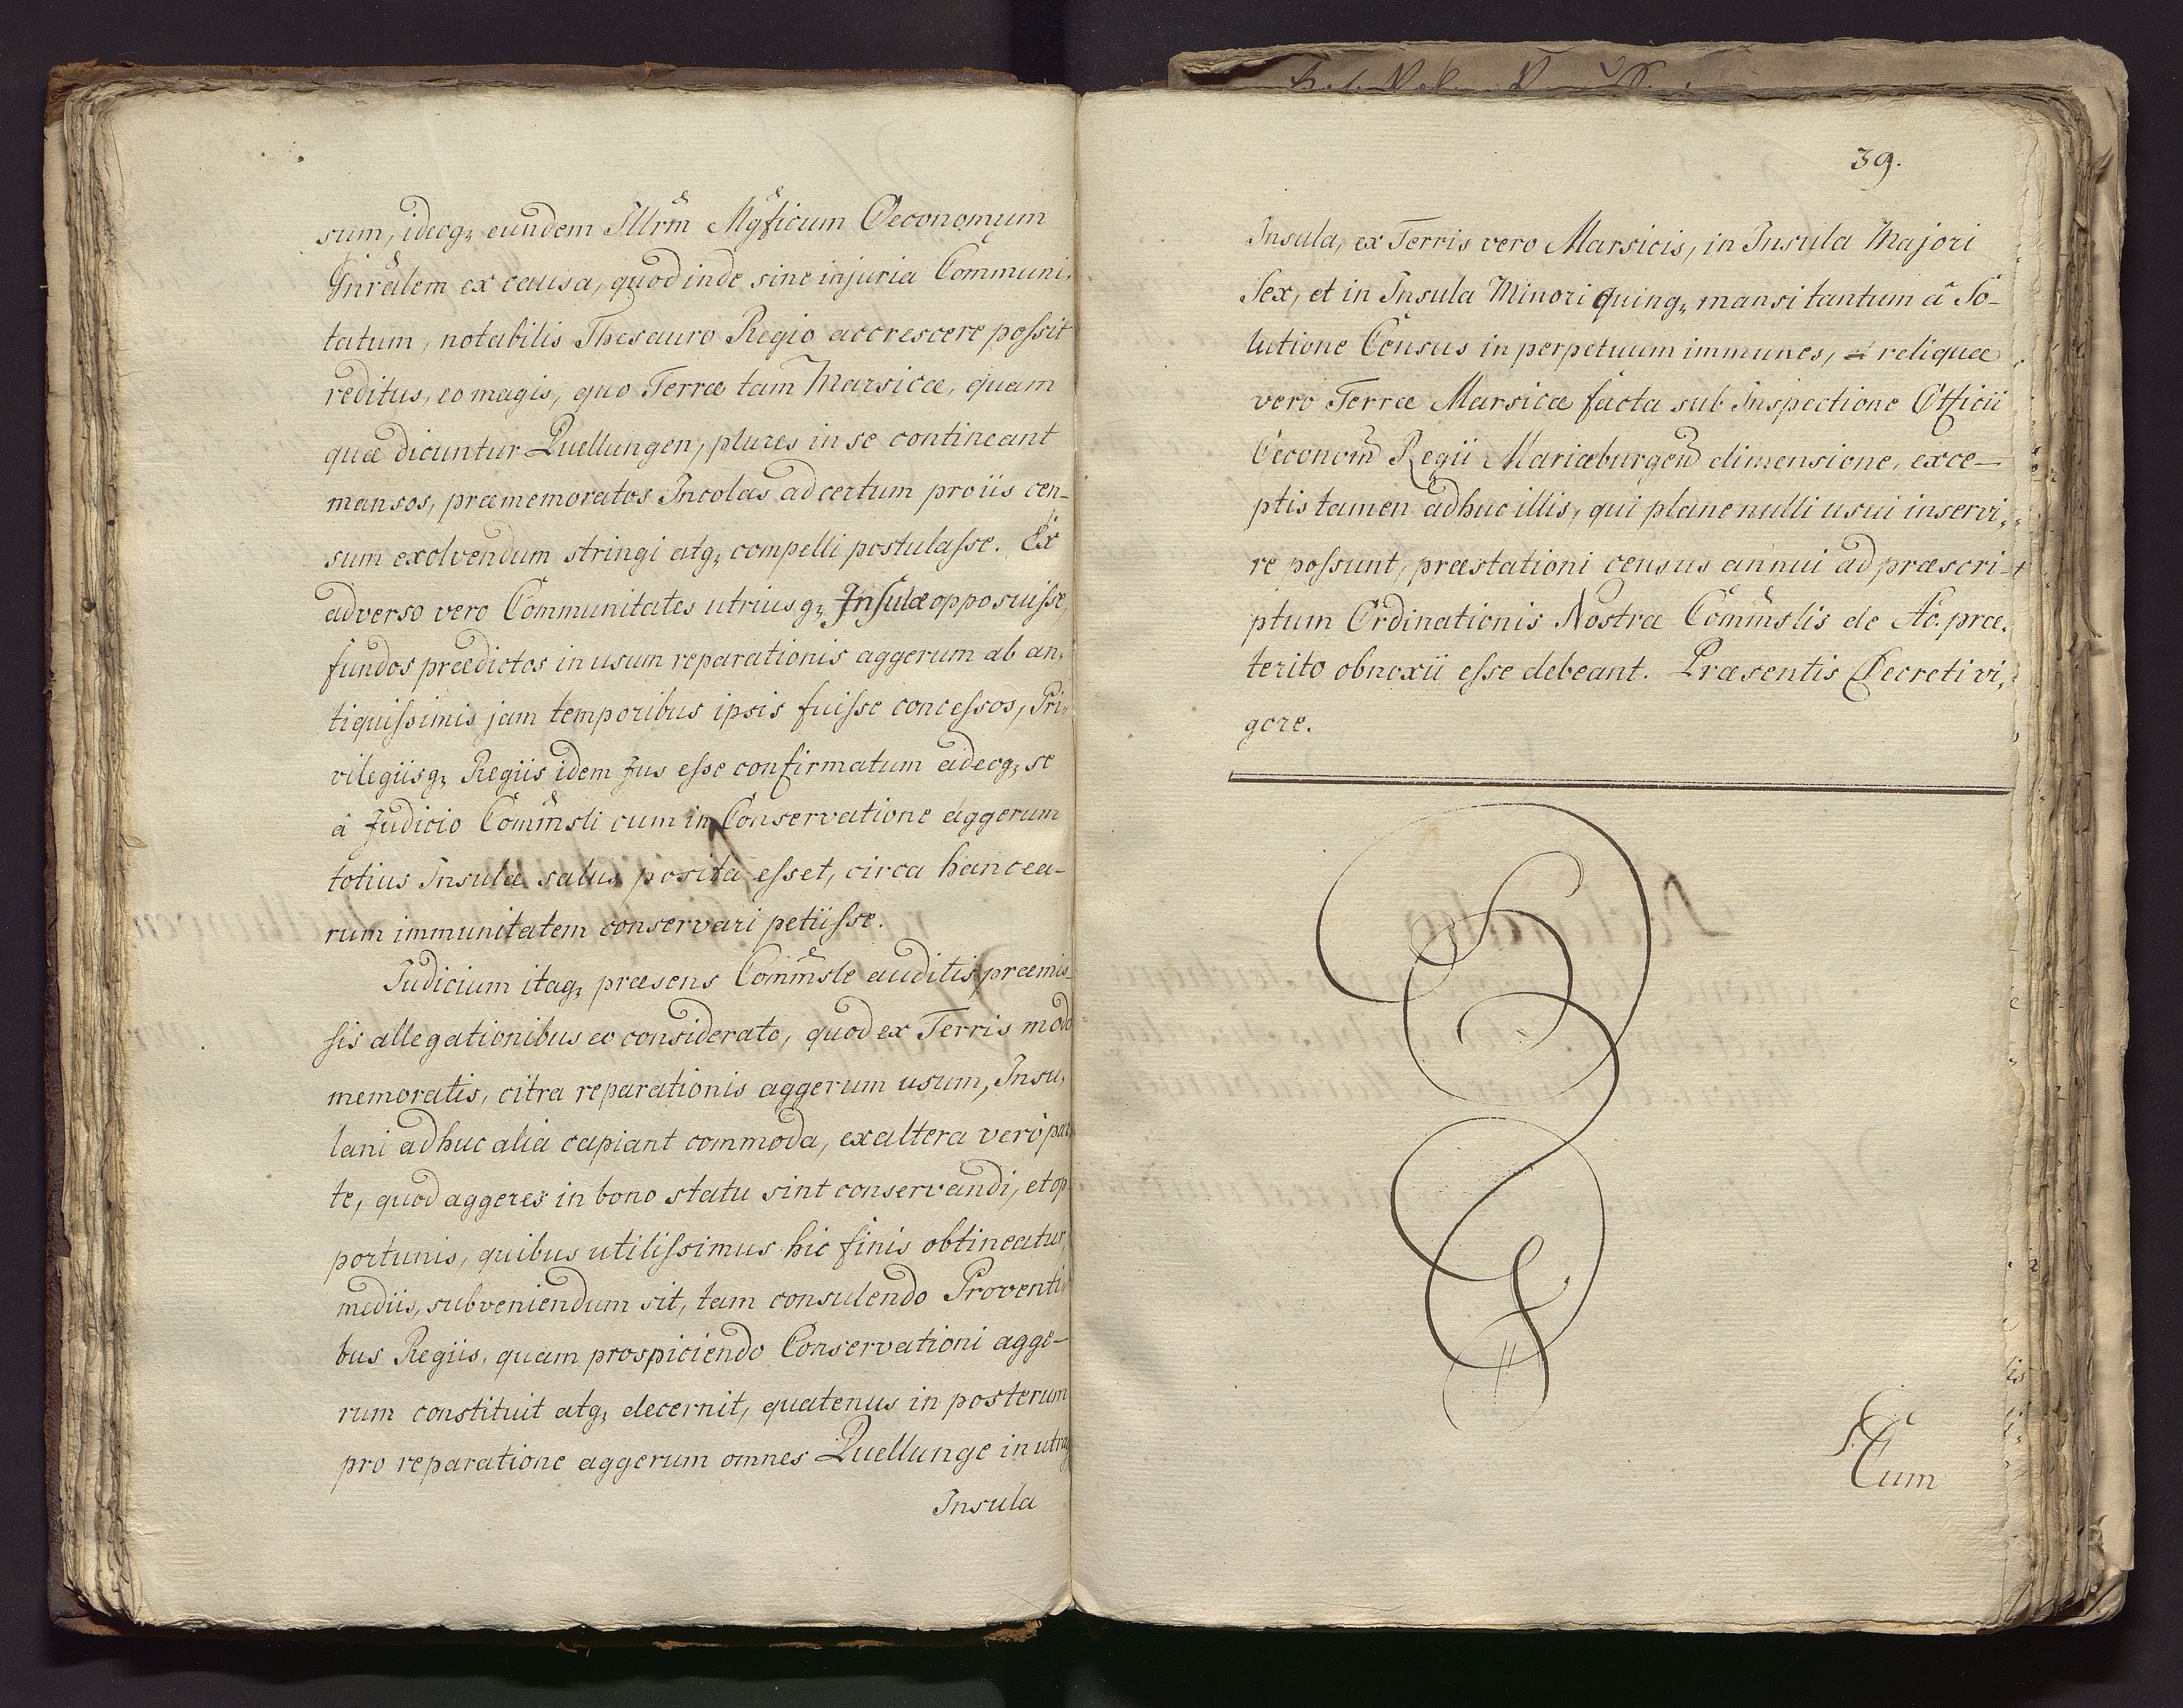 sum, ideoq; eundem Illrm Mgficum Oeconomum
Gnralem ex causa, quod inde sine injuria Communi,
tatum, notabilis Thesauro Regio accrescere possit
reditus, eo magis, quo Terræ tam Marsicæ, quam
quæ dicuntur Quellungen, plures in se contineant
mansos, præmemoratos Incolas ad certum pro iis cen-
sum exolvendum stringi atq; compelli postulasse. Ex
adverso vero Communitates utriusq; Insulæ opposuisse,
fundos prædictos in usum reparationis aggerum ab an,
tiquissimis jam temporibus ipsis fuisse concessos, Pri,
vilegiisq; Regiis idem Jus esse confirmatum adeoq; se
â Judicio Commsli cum in Conservatione aggerum
totius Insulæ salus posita esset, circa hanc ea-
rum immunitatem conservari petiisse.
Judicium itaq; præsens Commsle auditis præmis-
sis allegationibus eo considerato, quod ex Terris modo
memoratis, citra reparationis aggerum usum, Insu,
lani adhuc alia capiant commoda, ex altera verò par
te, quod aggeres in bono statu sint conservandi, et op
portunis, quibus utilissimus hic finis obtineatur,
mediis, subveniendum sit, tam consulendo Proventi,
bus Regiis, quam prospiciendo Conservationi agge-
rum constituit atq; decernit, quatenus in posterum
pro reparatione aggerum omnes Quellunge in utraq
Insula
39.
Insula, ex Terris vero Marsicis, in Insula Majori
Sex, et in Insula Minori Quinq; mansi tantum â So-
lutione Census in perpetuum immunes, reliquæ
vero Terræ Marsicæ facta sub Inspectione Officii
Oeconom Regii Mariæburgen dimensione, exce-
ptis tamen adhuc illis, qui plane nulli usui inservi,
re possunt, præstationi census annui ad præscri-
ptum Ordinationis Nostræ Commslis de Ao. præ,
terito obnoxii esse debeant. Præsentis Decreti vi,
gore.
Cum